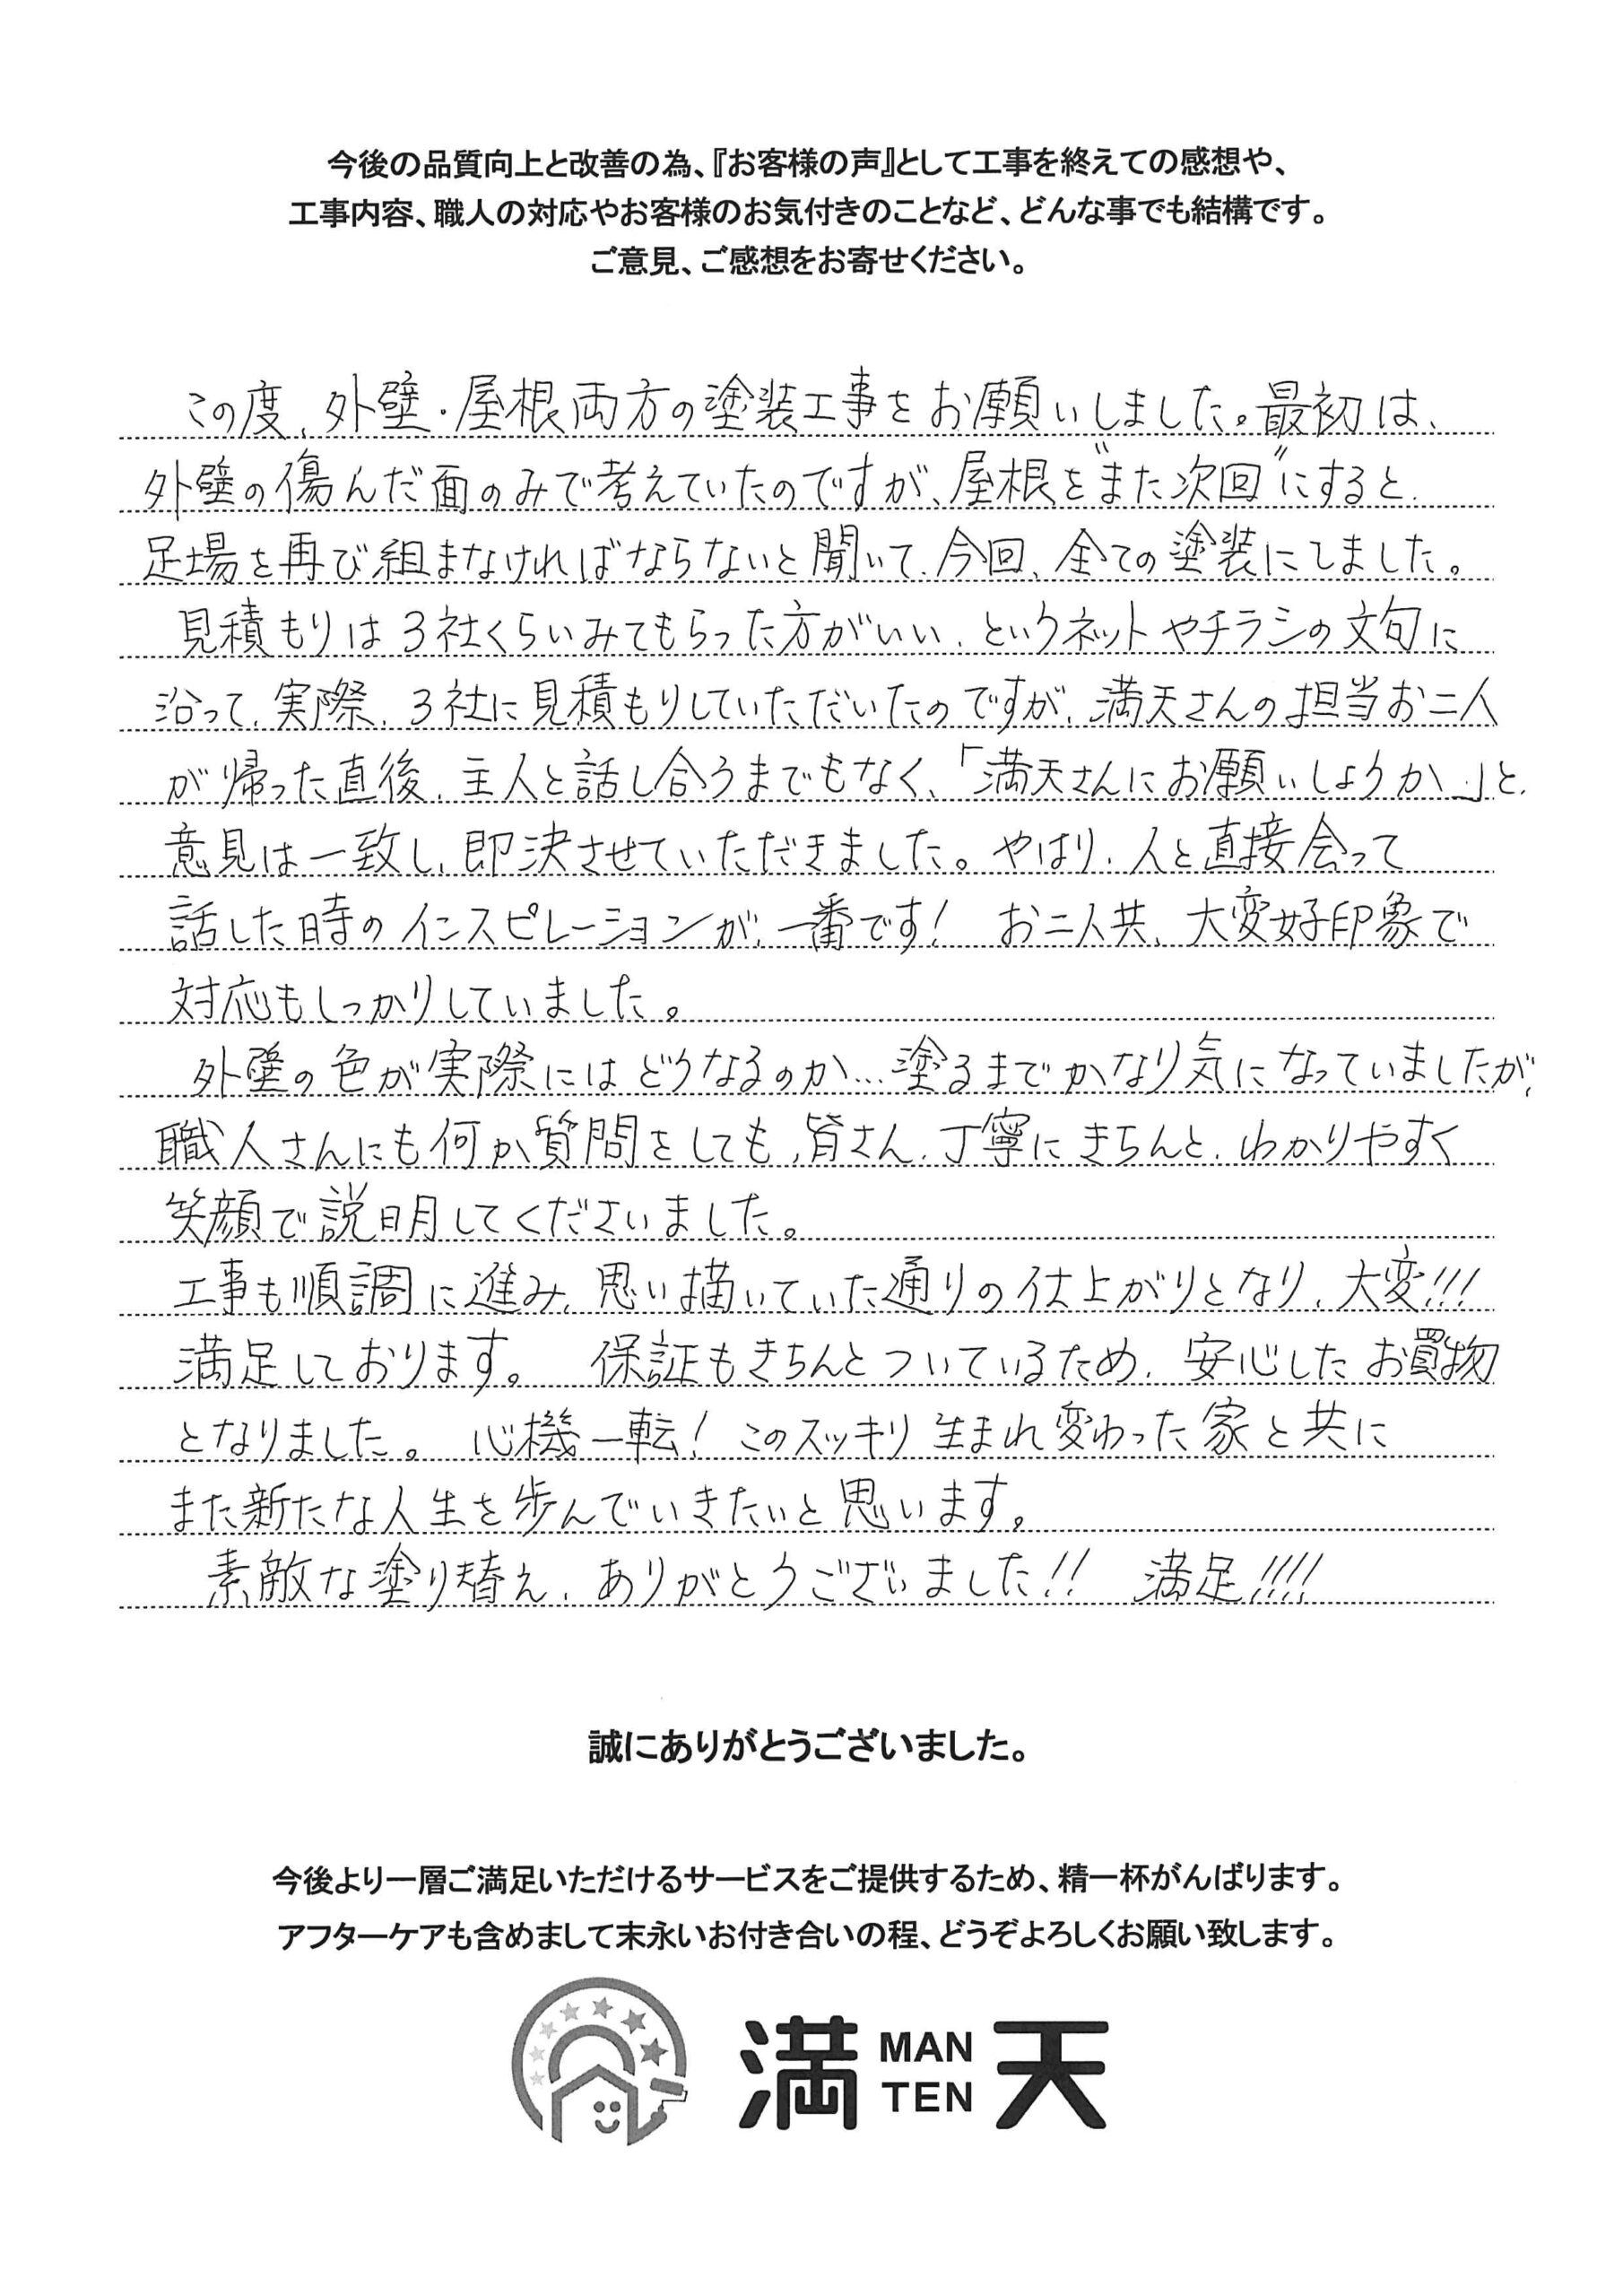 今後の品質向上と改善の為、『お客様の声』として工事を終えての感想や、
工事内容、職人の対応やお客様のお気付きのことなど、どんな事でも結構です。
ご意見、ご感想をお寄せください。
この度、外壁・屋根両方の塗装工事をお願いしました。最初は、
外壁の傷んだ面のみで考えていたのですが、屋根を“また次回”にすると、
足場を再び組まなければならないと聞いて、今回、全ての塗装にしました。
見積もりは3社くらいみてもらった方がいい、というネットやチラシの文句に
沿って、実際、3社に見積もりしていただいたのですが、満天さんの担当お二人
が帰った直後、主人と話し合うまでもなく、「満天さんにお願いしようか。」と、
意見は一致し、即決させていただきました。やはり、人と直接会って
話した時のインスピレーションが、一番です！ お二人共、大変好印象で
対応もしっかりしていました。
外壁の色が実際にはどうなるのか…塗るまでかなり気になっていましたが、
職人さんにも何か質問をしても、皆さん、丁寧にきちんと、わかりやすく
笑顔で説明してくださいました。
工事も順調に進み、思い描いていた通りの仕上がりとなり、大変!!!
満足しております。 保証もきちんとついているため、安心したお買物
となりました。 心機一転！ このスッキリ生まれ変わった家と共に
また新たな人生を歩んでいきたいと思います。
素敵な塗り替え、ありがとうございました!! 満足!!!!
誠にありがとうございました。
今後より一層ご満足いただけるサービスをご提供するため、精一杯がんばります。
アフターケアも含めまして末永いお付き合いの程、どうぞよろしくお願い致します。
満 MAN TEN 天